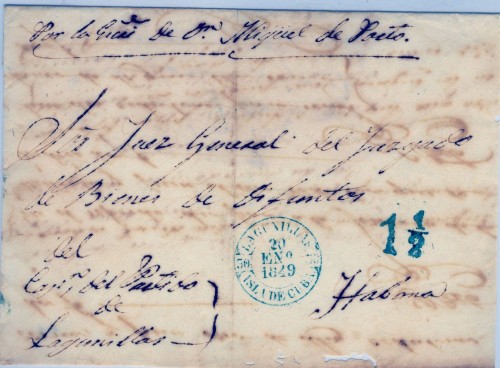 Por la de Dn. Miguel de Porto.
Sor. Juez General del Juzgado
de Bienes de difuntos
LAGUNILLAS
20
ENº
1849
ISLA DE CUBA
1 1/2
del
del Partido
de
Lagunillas
Habana